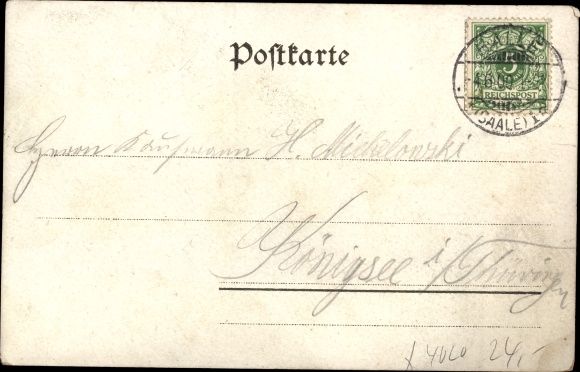 Postkarte
HALLE
5
4.6.00
REICHSPOST
(SAALE) 1
Herrn Kaufmann H. Michelowski
Königsee i/Thüringen
x 4020 24,-